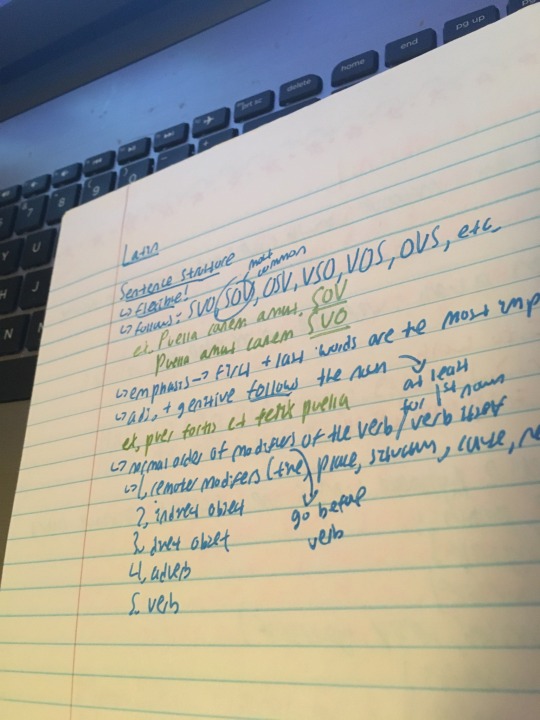 prt sc
delete
home
end
pg up
7
8
9
0
Y
U
H
J
N
Latin
Sentence Structure
↳ Flexible!
most common
↳ follows: SVO, SOV, OSV, VSO, VOS, OVS, etc.
ex. Puella canem amat. SOV
Puella amat canem SVO
↳ emphasis → first + last words are the most imp
↳ adj. + genitive follows the noun → at least for 1st noun
ex, puer fortis et felix puella
↳ normal order of modifiers of the verb / verb itself
↳ 1. remoter modifiers (time, place, situation, cause,
go before verb
2. indirect object
3. direct object
4. adverb
5. verb